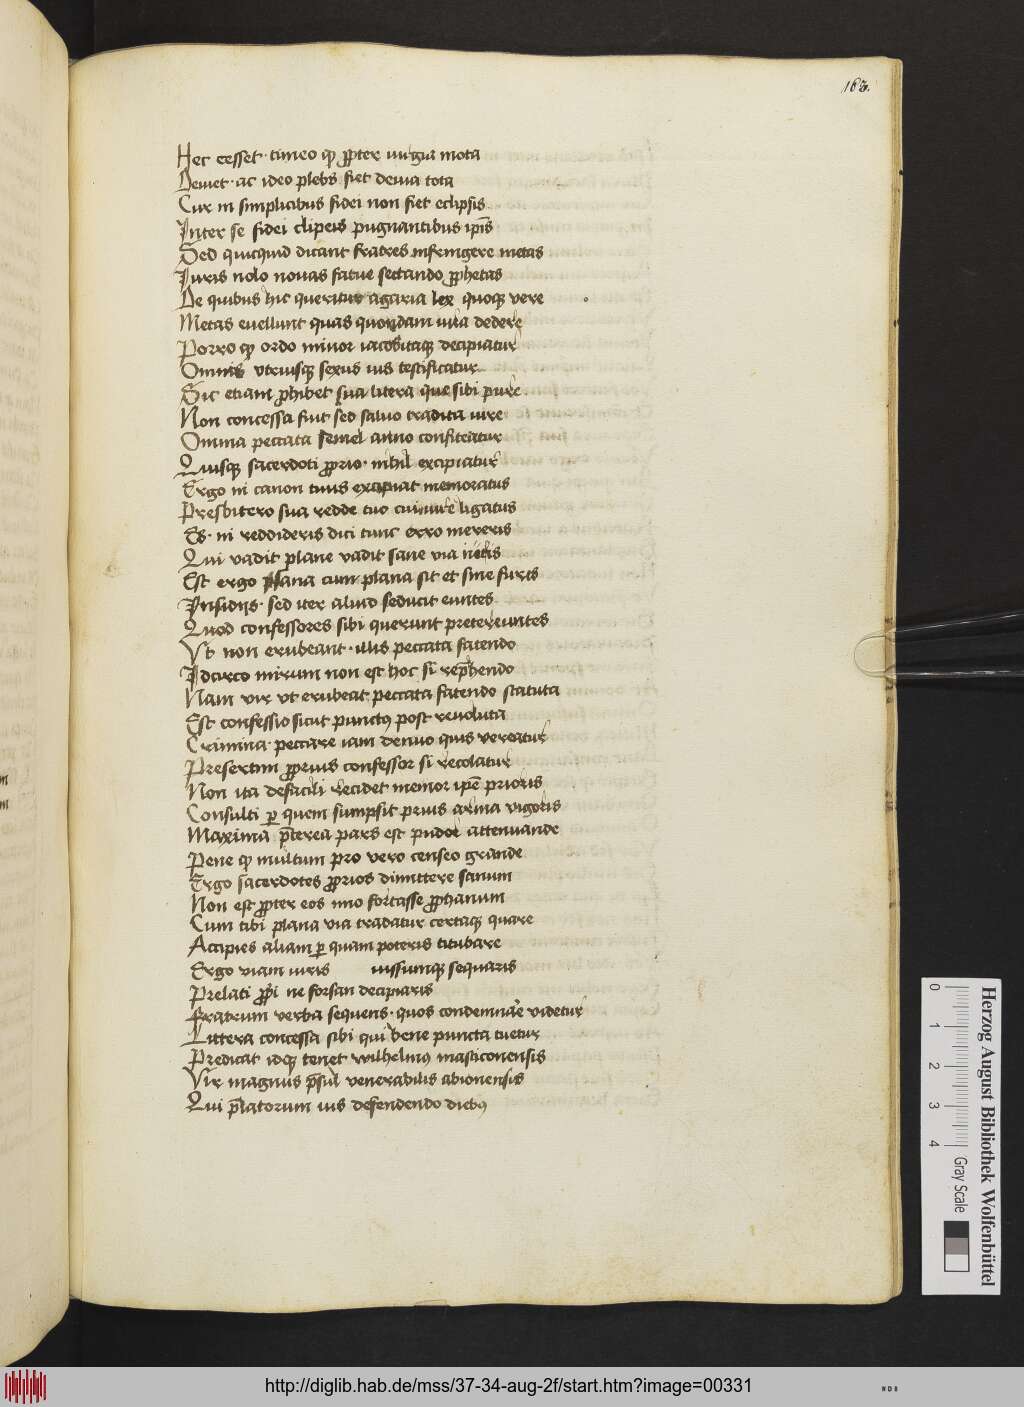 162.
Hec cesset· timeo qꝫ ꝓpter iurgia mota
Deniet· ac ideo plebs fiet deuia tota
Cur in simplicibus fidei non fiet eclipsis
Inter se fidei clipeis pugnantibus ip̄is
Sed quicquid dicant fratres infringere metas
Iuris nolo nouas fatue sectando ꝓphetas
De quibus hic queritur agaria lex quoqꝫ vere
Metas euellunt quas quondam iura dedere
Porro qꝫ ordo minor iacobitaqꝫ decipiatur
Omnis vtriusqꝫ sexus ius testificatur
Sic etiam ꝓhibet sua litera que sibi pure
Non concessa fuit sed saluo tradita iure
Omnia peccata semel anno confiteatur
Quisqꝫ sacerdoti ꝓprio· nihil excipiatur
Ergo ni canon tuus excipiat memoratus
Presbitero sua redde tuo cui iure ligatus
Es· ni reddideris dici tunc erro mereris
Qui vadit plane vadit sane via iuris
Est ergo plana cum plana sit et sine furis
Insidijs· sed iter aliud seducit euntes
Quod confessores sibi querunt pretereuntes
Vt non erubeant· illis peccata fatendo
Idcirco mirum non est hoc si rep̄hendo
Nam vir vt erubeat peccata fatendo statuta
Est confessio sicut punctꝰ post reuoluta
Crimina· peccare iam denuo quis vereatur
Presertim ꝓprius confessor si recolatur
Non ita defacili recidet memor ip̄e prioris
Consulti ꝑ quem sumpsit prius arma vigoris
Maxima p̄terea pars est pudor attenuande
Pene qꝫ multum pro vero censeo grande
Ergo sacerdotes ꝓprios dimittere sanum
Non est ꝓpter eos imo fortasse ꝓphanum
Cum tibi plana via tradatur certaqꝫ quare
Accipies aliam ꝑ quam poteris titubare
Ergo viam iuris iussumqꝫ sequaris
Prelati ꝓp̄i ne forsan decipiaris
Fratrum verba sequens· quos condemnare videtur
Littera concessa sibi qui bene puncta tuetur
Predicat idqꝫ tenet wilhelmꝰ masticonensis
Vir magnus p̄sul venerabilis abionensis
Qui p̄latorum ius defendendo diebꝰ
0 1 2 3 4
Gray Scale
Herzog August Bibliothek Wolfenbüttel
http://diglib.hab.de/mss/37-34-aug-2f/start.htm?image=00331